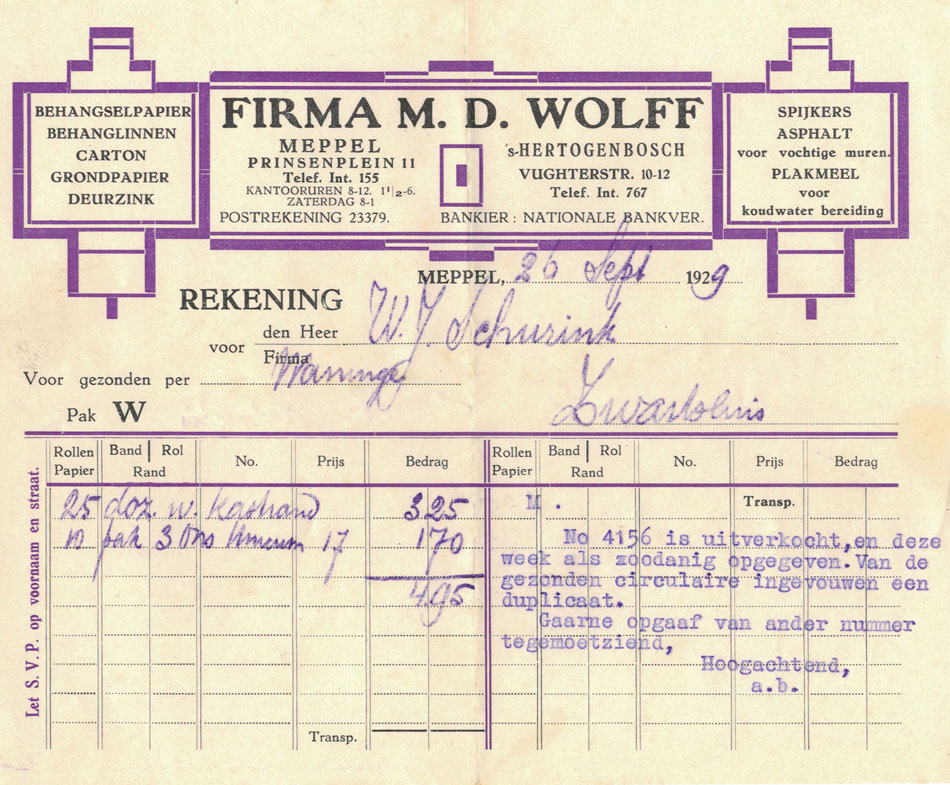 BEHANGSELPAPIER
BEHANGLINNEN
CARTON
GRONDPAPIER
DEURZINK
FIRMA M. D. WOLFF
MEPPEL
PRINSENPLEIN 11
Telef. Int. 155
KANTOORUREN 8-12. 1 1/2-6.
ZATERDAG 8-1
POSTREKENING 23379.
's-HERTOGENBOSCH
VUGHTERSTR. 10-12
Telef. Int. 767
BANKIER: NATIONALE BANKVER.
SPIJKERS
ASPHALT
voor vochtige muren.
PLAKMEEL
voor
koudwater bereiding
MEPPEL, 26 Sept 1929
REKENING
voor den Heer W. J. Schurink
Firma
Voor gezonden per Wanninge
Zwartsluis
Pak W
Let S. V. P. op voornaam en straat.
Rollen Papier Band | Rol Rand No. Prijs Bedrag
25 doz. w. kastrand 325
10 pak 3 Ons 17 170
495
Transp.
Rollen Papier Band | Rol Rand No. Prijs Bedrag
M. Transp.
No 4156 is uitverkocht,en deze
week als zoodanig opgegeven.Van de
gezonden circulaire ingevouwen een
duplicaat.
Gaarne opgaaf van ander nummer
tegemoetziend,
Hoogachtend,
a.b.